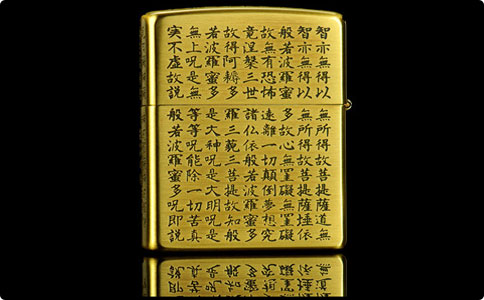 智亦無得以無所得故菩提薩道無
智亦無得以無所得故菩提薩埵依
般若波羅蜜多故心無罣礙無罣礙
故無有恐怖遠離一切顛倒夢想究
竟涅槃三世諸仏依般若波羅蜜多
故得阿耨多羅三藐三菩提故知般
若波羅蜜多是大神呪是大明呪是
無上呪是無等等呪能除一切苦真
実不虚故説般若波羅蜜多呪即説